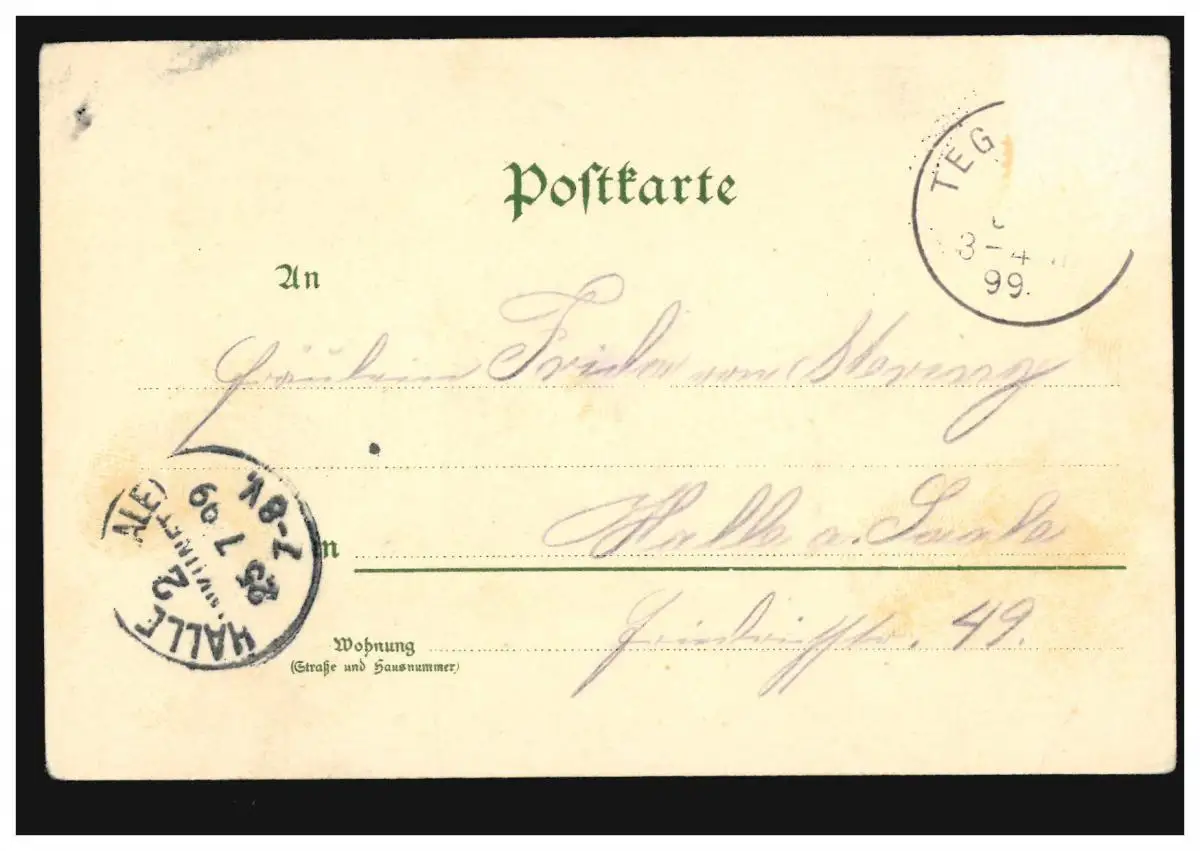 Postkarte
TEG
3-4
99.
An
Fräulein Frida von
Halle a. Saale
in
HALLE 2
ALE)
7-8V.
7 99
Wohnung
(Straße und Hausnummer)
Friedrichstr. 49.